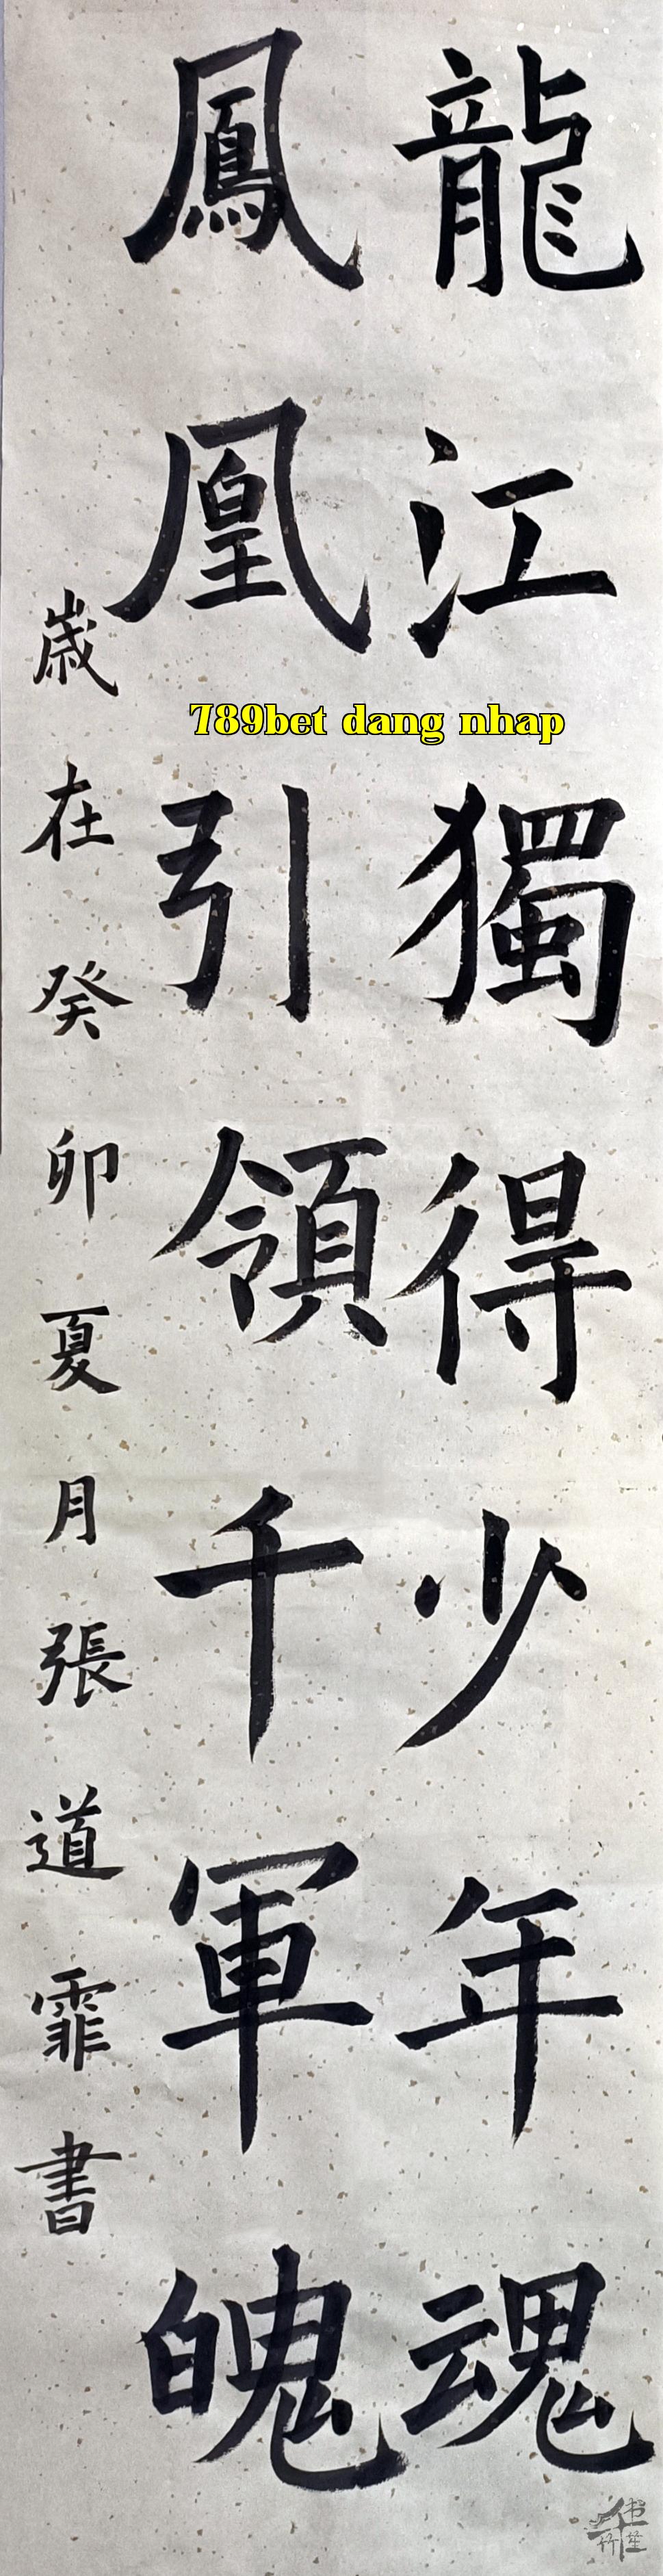 龍江獨得少年魂
鳳凰引領千軍魄
歲在癸卯夏月張道霏書
789bet dang nhap